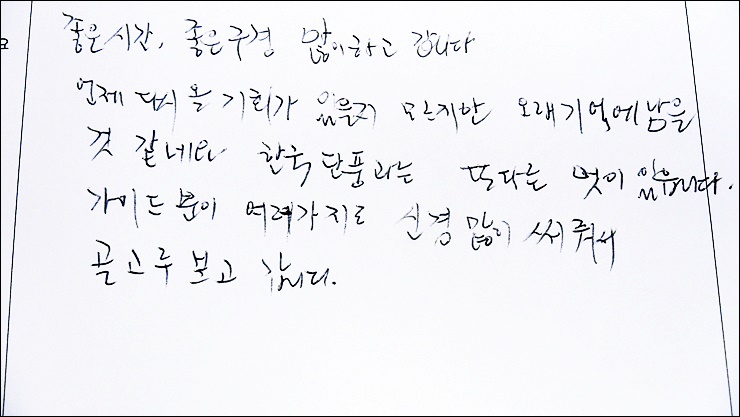 좋은시간, 좋은구경 많이하고 갑니다
언제 다시 올 기회가 있을지 모르지만 오래기억에남을
것 같네요 한국단풍과는 또다른 멋이 있읍니다.
가이드분이 여러가지로 신경 많이 써줘서
골고루 보고 갑니다.